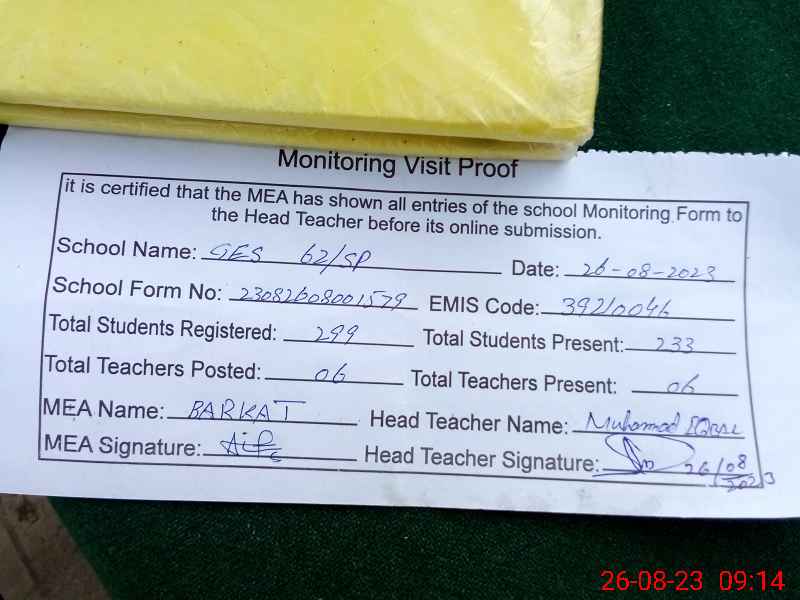 Monitoring Visit Proof
it is certified that the MEA has shown all entries of the school Monitoring Form to
the Head Teacher before its online submission.
School Name: GES 62/SP Date: 26-08-2023
School Form No: 23082608001579 EMIS Code: 39210046
Total Students Registered: 299 Total Students Present: 233
Total Teachers Posted: 06 Total Teachers Present: 06
MEA Name: BARKAT Head Teacher Name: Muhamad IQBAL
MEA Signature: Head Teacher Signature: 26/08
2023
26-08-23 09:14